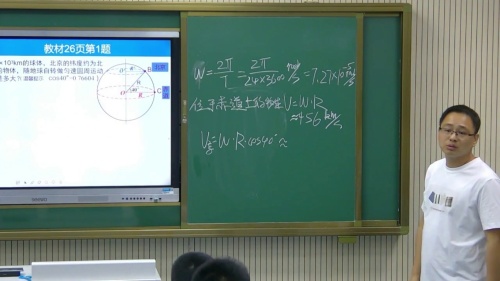 教材26页第1题
×10³km的球体，北京的纬度约为北
的物体，随地球自转做匀速圆周运动
是多大？（温馨提示：cos40°=0.76604）
北京
O'
r
B
O
R
C
W = 2π/T = 2π/24×3600 rad/s = 7.27×10⁻⁵ rad/s
位于赤道上的物体 V = W·R
≈456
V北 = W·R·cos40° ≈